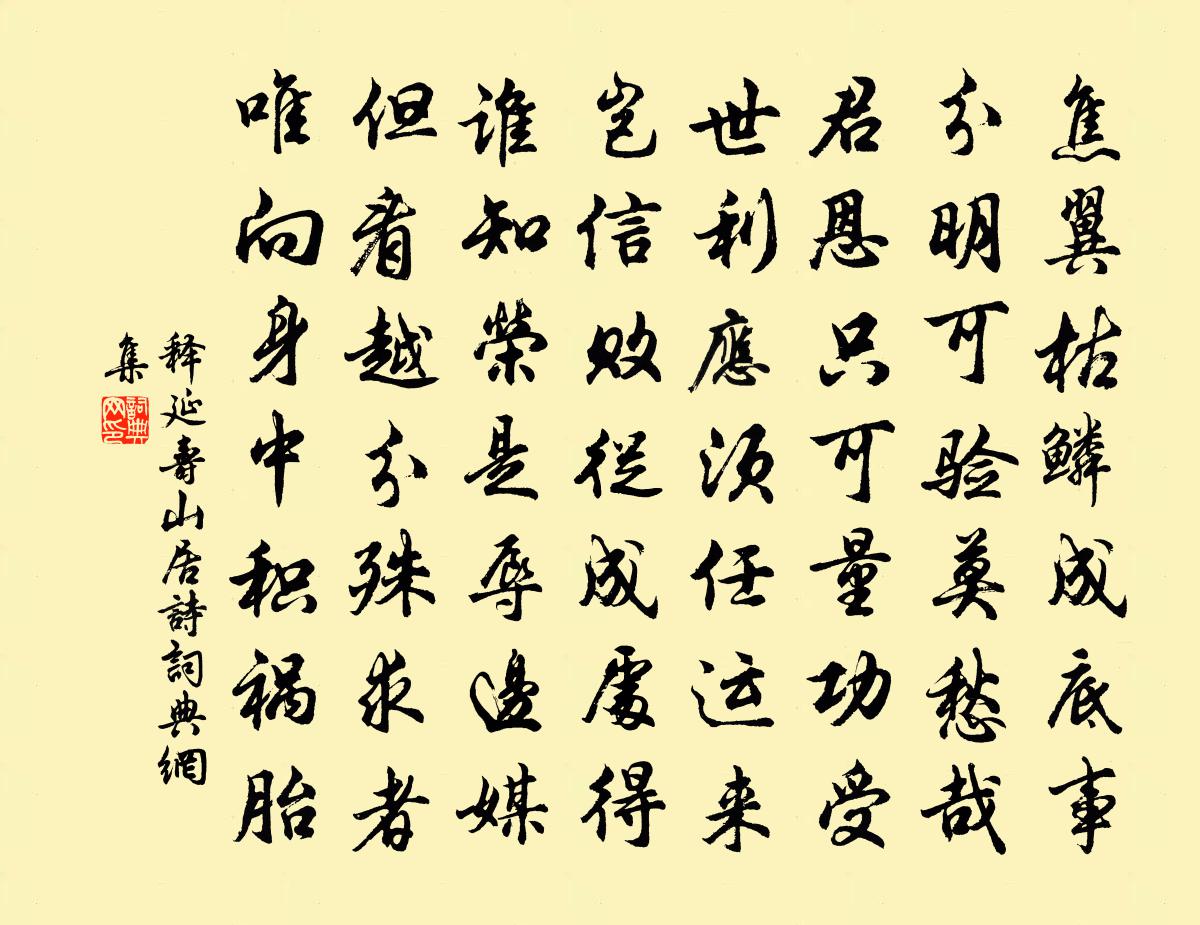 焦翼枯鳞成底事
分明可验莫愁哉
君恩只可量功受
世利應须任运来
岂信败從成處得
谁知榮是辱邊媒
但看越分殊求者
唯向身中积祸胎
释延壽山居詩詞典網
集
詞典網印